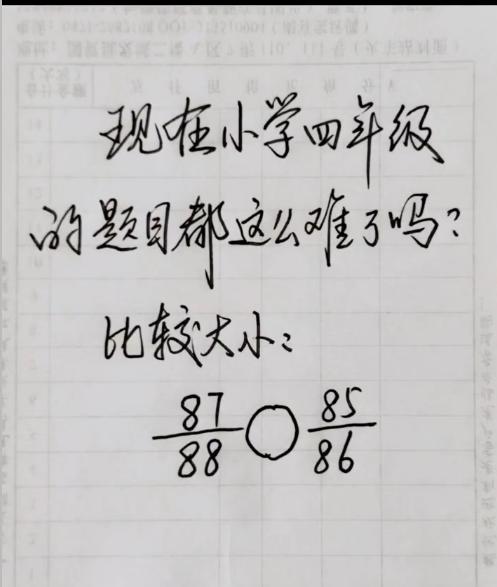 现在小学四年级
的题目都这么难了吗？
比较大小：
87/88 ○ 85/86